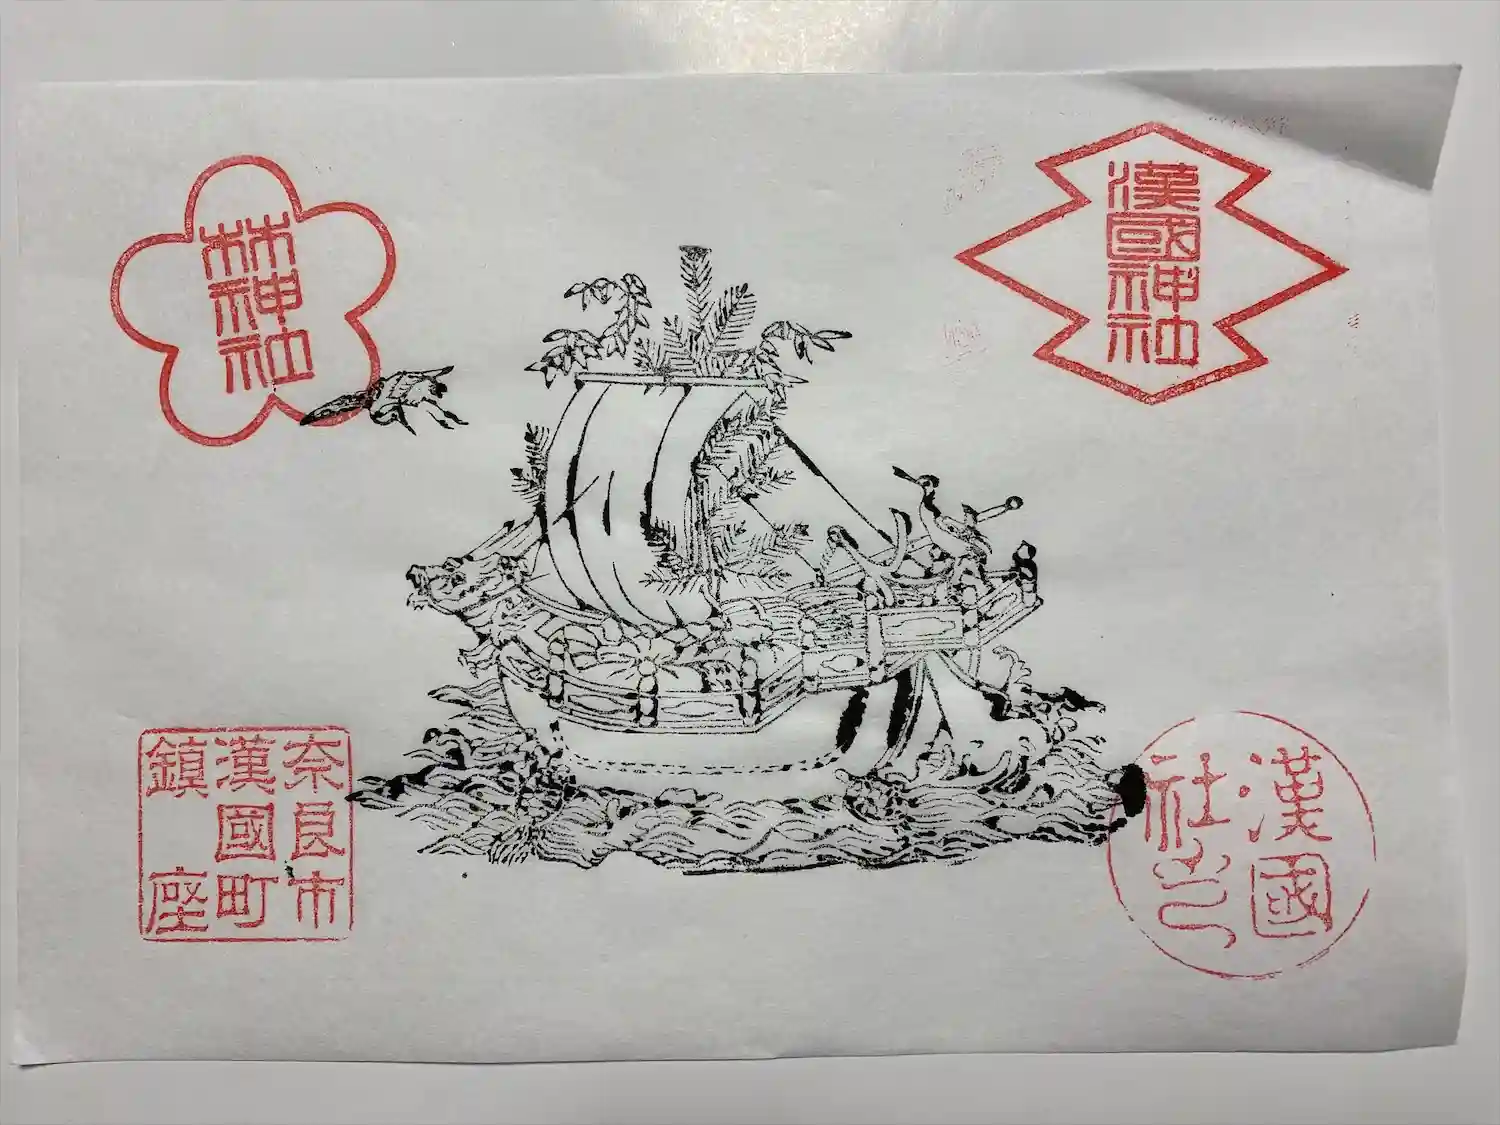 漢國神社
林神社
奈良市
漢國町
鎮座
漢國
社印